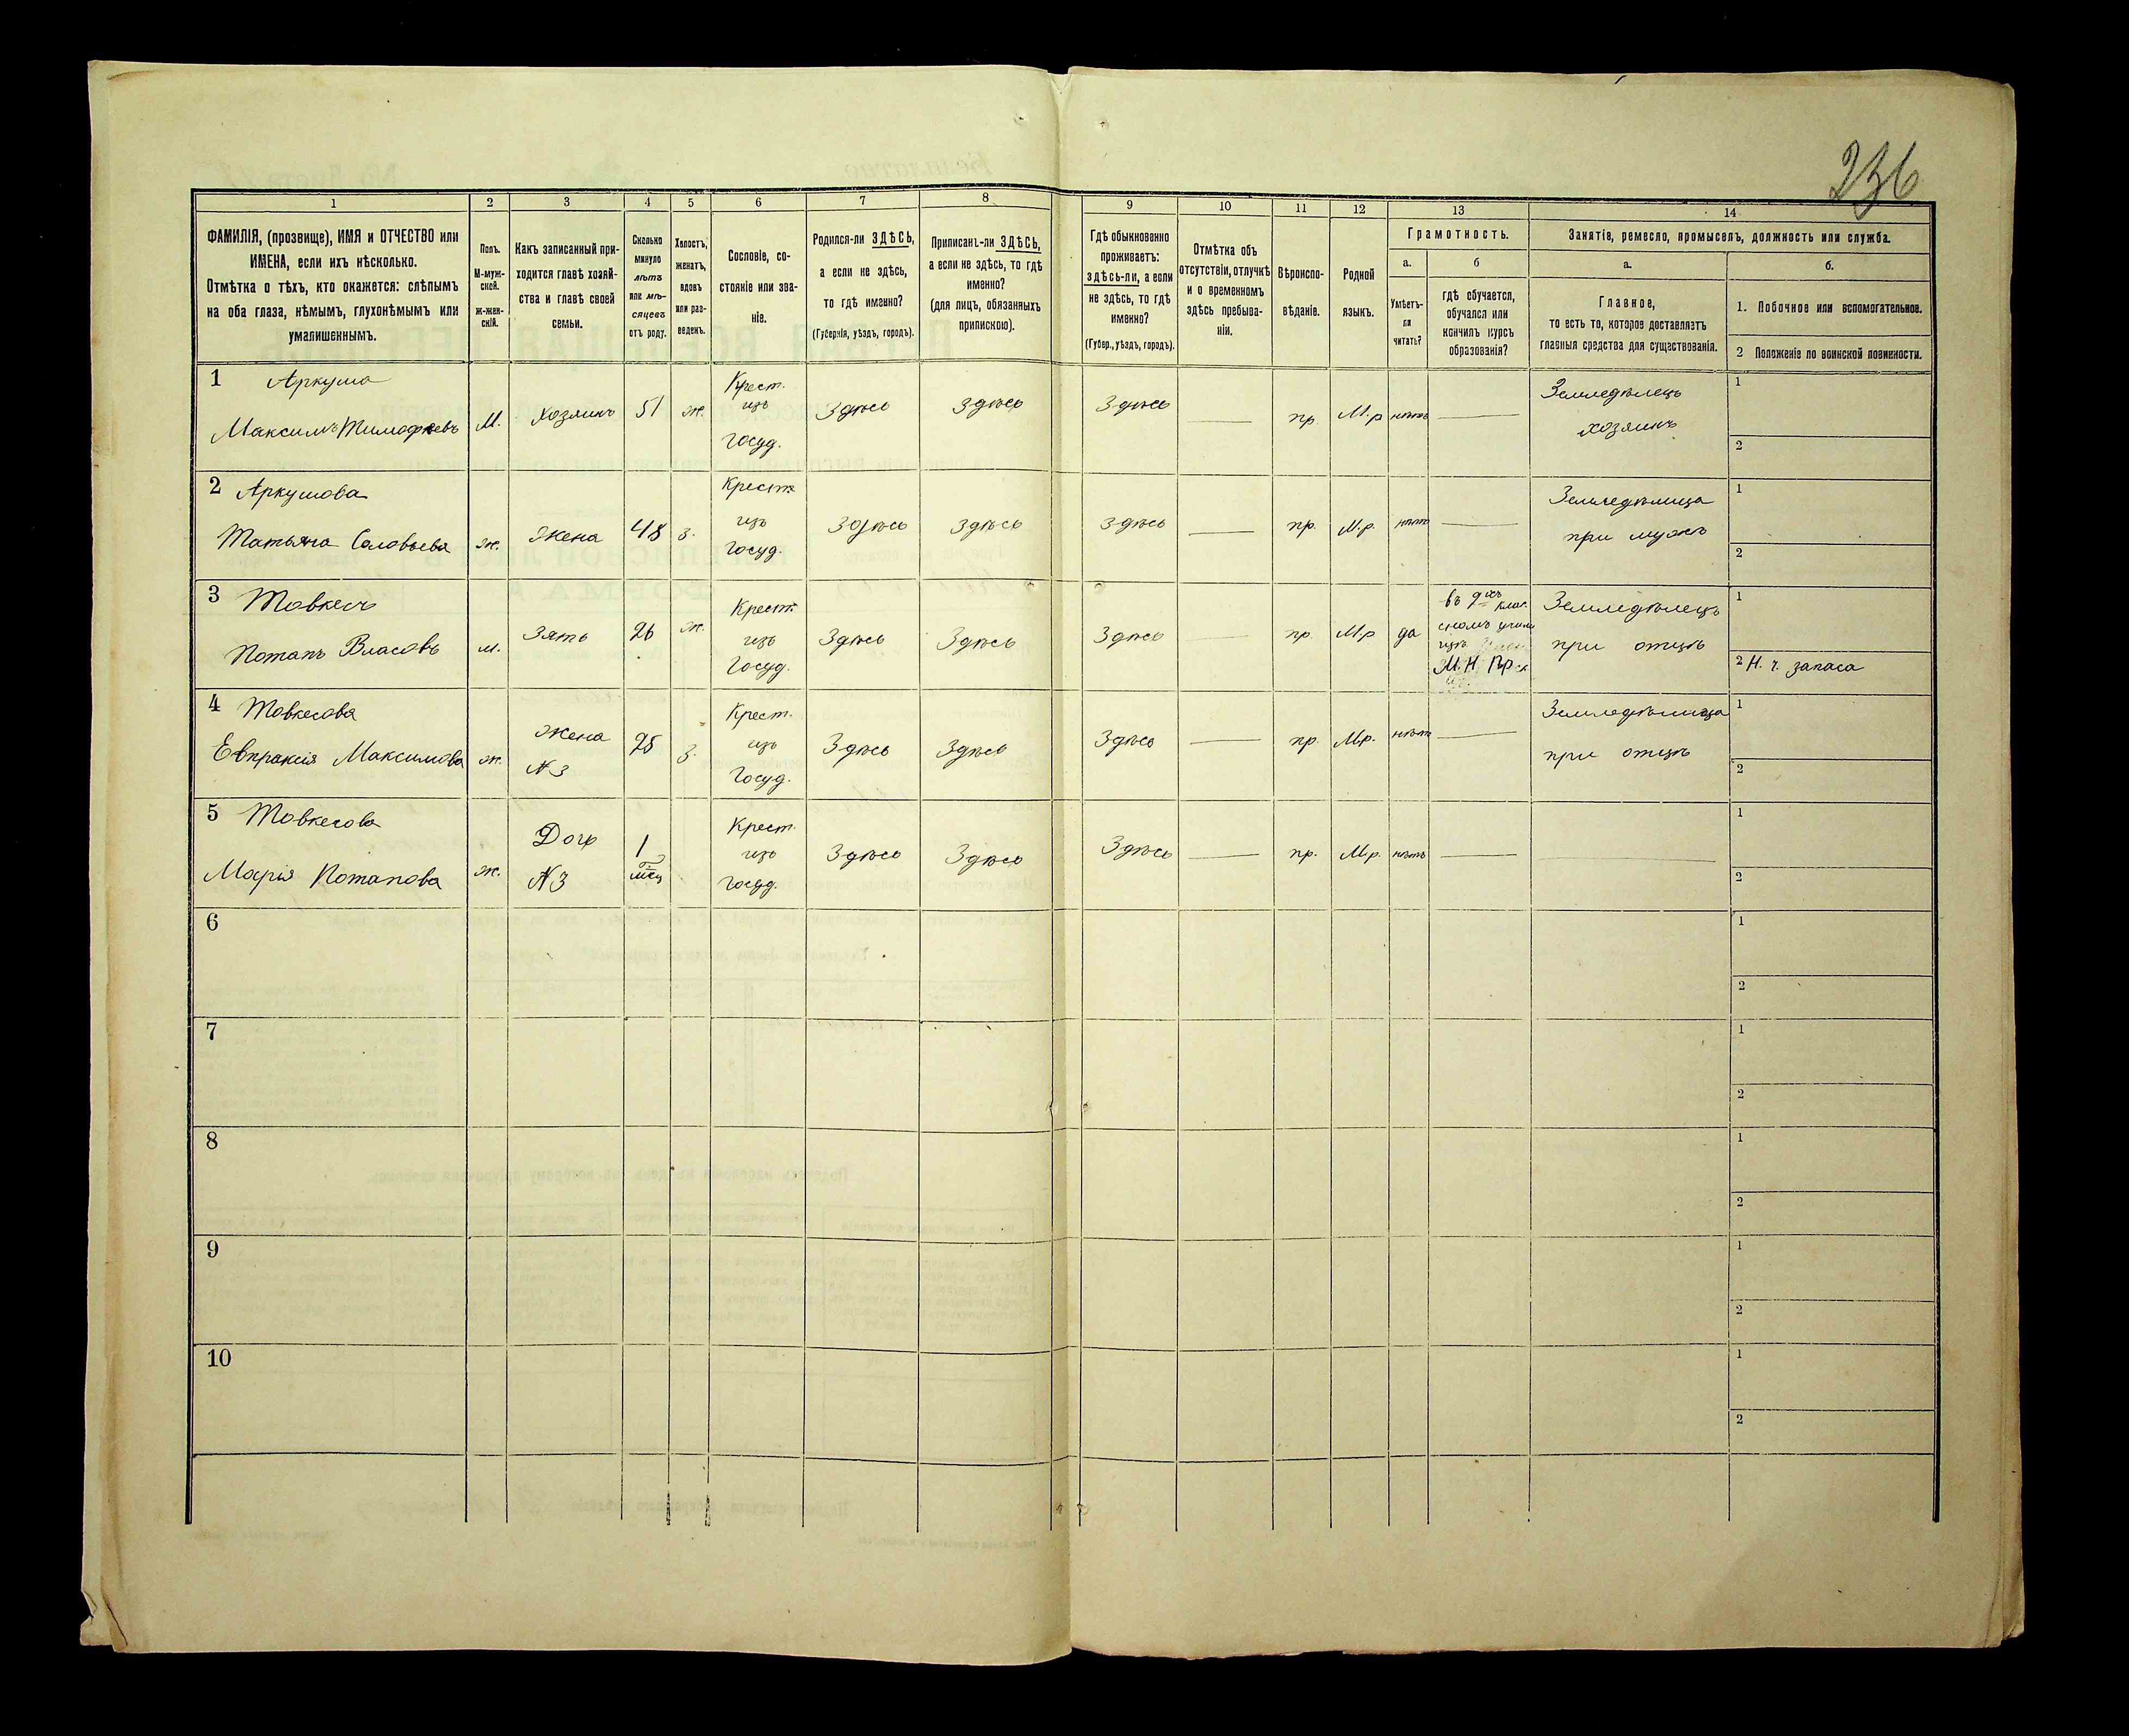 236
1 2 3 4 5 6 7 8 9 10 11 12 13 14
ФАМИЛІЯ, (прозвище), ИМЯ и ОТЧЕСТВО или
ИМЕНА, если ихъ нѣсколько.
Отмѣтка о тѣхъ, кто окажется: слѣпымъ
на оба глаза, нѣмымъ, глухонѣмымъ или
умалишеннымъ.
Полъ.
М-муж-
ской.
ж-жен-
скій.
Какъ записанный при-
ходится главѣ хозяй-
ства и главѣ своей
семьи.
Сколько
минуло
лѣтъ
или мѣ-
сяцевъ
отъ роду.
Холостъ,
женатъ,
вдовъ
или раз-
веденъ.
Сословіе, со-
стояніе или зва-
ніе.
Родился-ли ЗДѢСЬ,
а если не здѣсь,
то гдѣ именно?
(Губернія, уѣздъ, городъ).
Приписанъ-ли ЗДѢСЬ,
а если не здѣсь, то гдѣ
именно?
(для лицъ, обязанныхъ
припискою).
Гдѣ обыкновенно
проживаетъ:
здѣсь-ли, а если
не здѣсь, то гдѣ
именно?
(Губер., уѣздъ, городъ).
Отмѣтка объ
отсутствіи, отлучкѣ
и о временномъ
здѣсь пребыва-
ніи.
Вѣроиспо-
вѣданіе.
Родной
языкъ.
Грамотность.
а.
Умѣетъ-
ли
читать?
б
гдѣ обучается,
обучался или
кончилъ курсъ
образованія?
Занятіе, ремесло, промыселъ, должность или служба.
а.
Главное,
то есть то, которое доставляетъ
главныя средства для существованія.
б.
1. Побочное или вспомогательное.
2 Положеніе по воинской повинности.
1 Аркуша
Максимъ Тимофѣевъ М. хозяинъ 51 ж. Крест. изъ Госуд. Здѣсь Здѣсь Здѣсь — пр. М.р нѣтъ — Земледѣлецъ хозяинъ 1
2
2 Аркушова
Татьяна Соловьева ж. Жена 48 з. Крест. изъ Госуд. Здѣсь Здѣсь Здѣсь — пр. М.р. нѣтъ — Земледѣлица при мужѣ 1
2
3 Товкесъ
Потапъ Власовъ м. Зять 26 ж. Крест. изъ Госуд. Здѣсь Здѣсь Здѣсь — пр. М.р да въ 2хъ клас. М. Н. Пр. Земледѣлецъ при отцѣ 1
2 Н. ч. запаса
4 Товкесова
Евпраксія Максимова ж. Жена N 3 25 з. Крест. изъ Госуд. Здѣсь Здѣсь Здѣсь — пр. М.р. нѣтъ — Земледѣлица при отцѣ 1
2
5 Товкесова
Марія Потапова ж. Дочь N 3 1 мсц Крест. изъ Госуд. Здѣсь Здѣсь Здѣсь — пр. М.р. нѣтъ — — 1
2
6 1
2
7 1
2
8 1
2
9 1
2
10 1
2